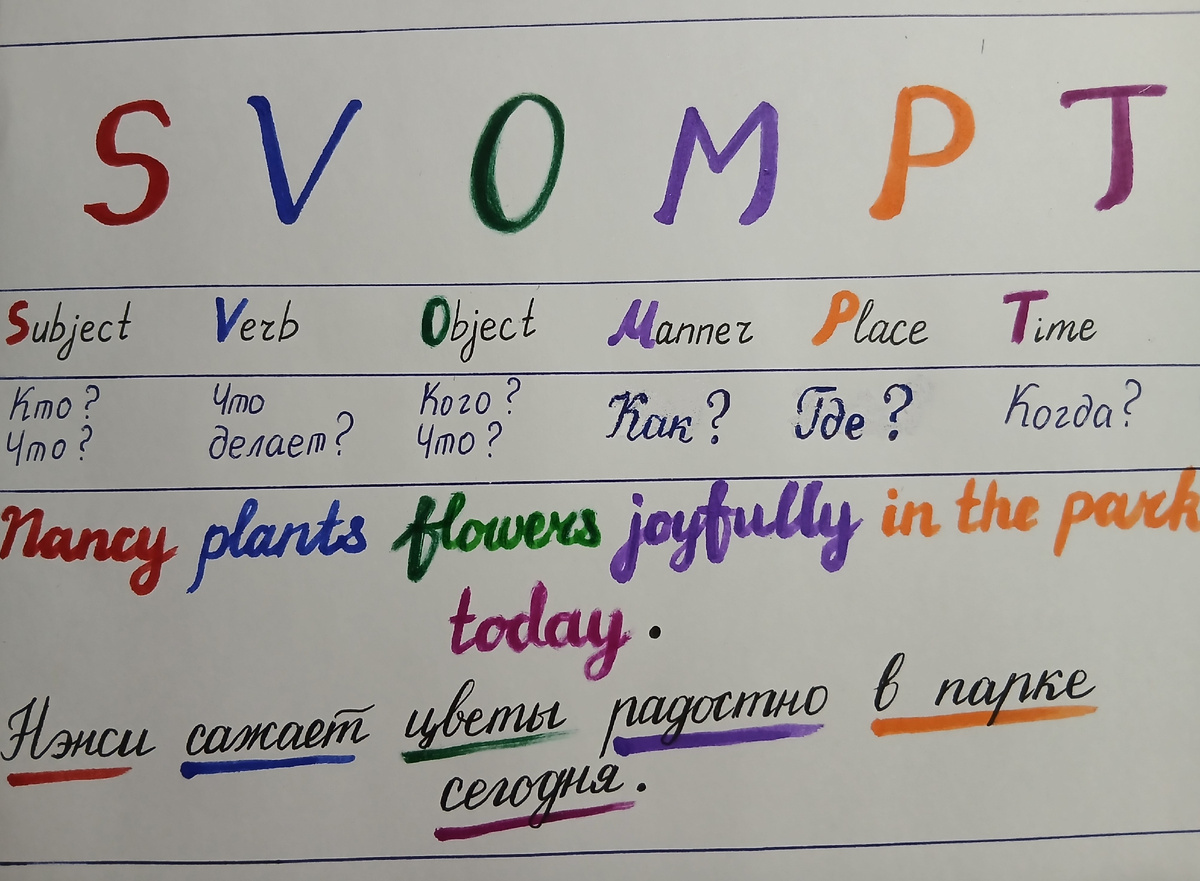 S V O M P T
Subject Verb Object Manner Place Time
Кто? Что Кого? Как? Где? Когда?
Что? делает? Что?
Nancy plants flowers joyfully in the park
today.
Нэнси сажает цветы радостно в парке
сегодня.